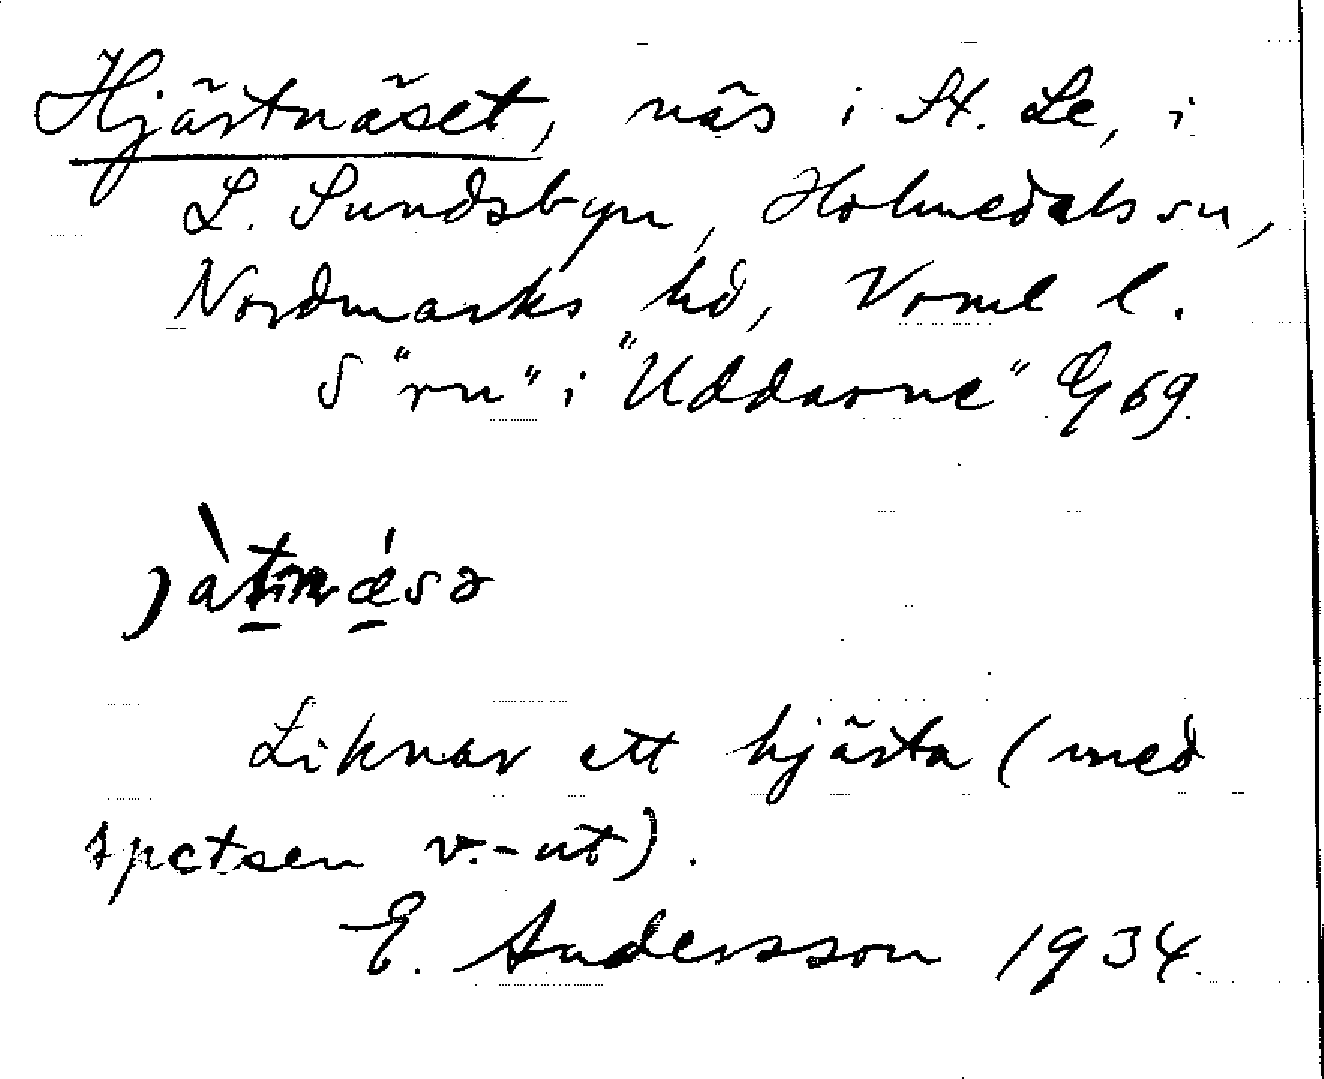 Hjärtnäset, näs i St. Le, i
L. Sundsbyn, Holmedals sn,
Nordmarks hd, Vrml l.
S "rn" i "Uddarne" 69
Liknar ett hjärta (med
spetsen v.-ut).
E. Andersson 1934.